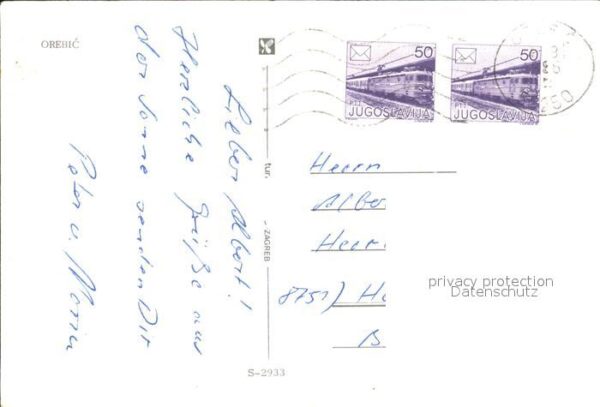 OREBIĆ
Lieber Albert!
Herzliche Grüße aus
der Sonne senden Dir
Peter u. Maria
tur.
- ZAGREB
S-2933
50
JUGOSLAVIJA
50
JUGOSLAVIJA
Herrn
Alber
Heer
8751) H
B
privacy protection
Datenschutz